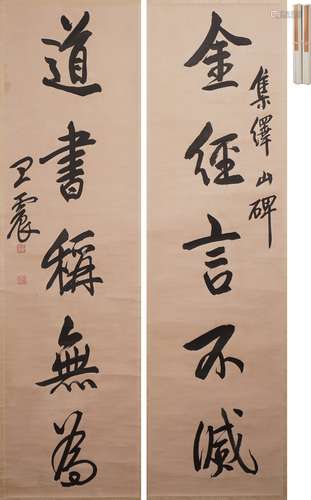 金經言不滅
集繹山碑
道書稱無為
王震